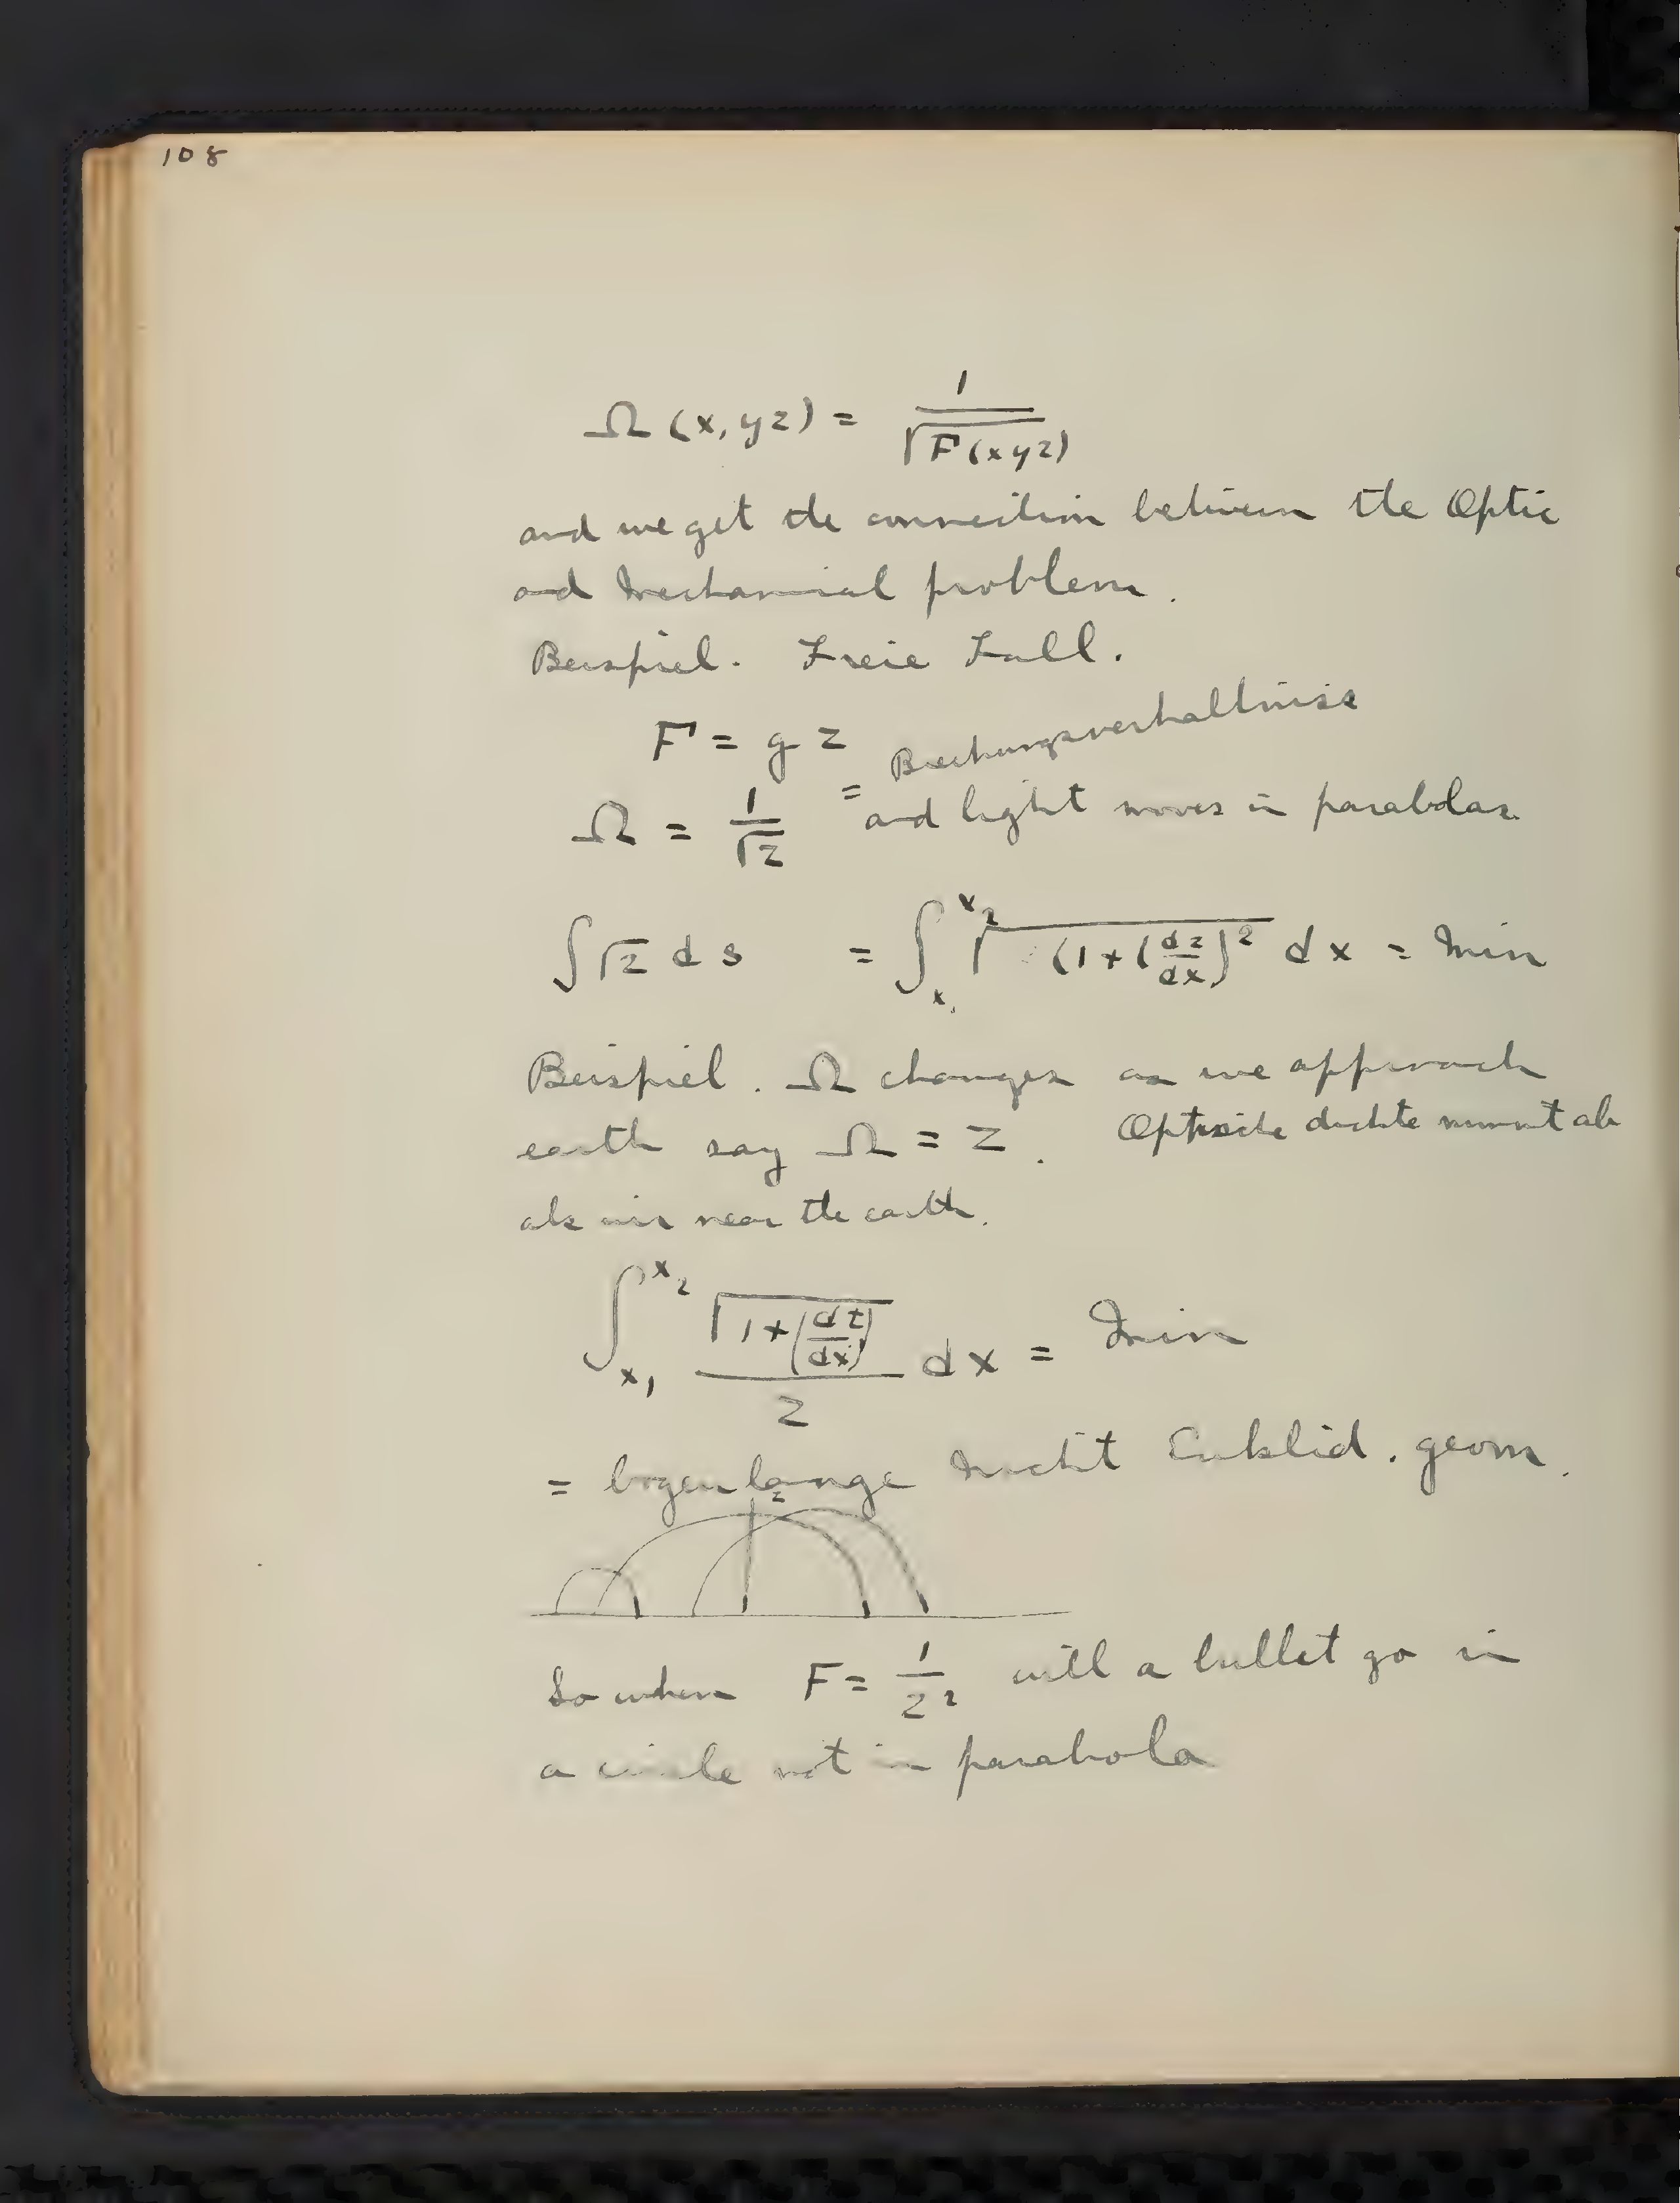 108
Ω (x, y z) = 1/√F(x y z)
and we get the connection between the Optic
and mechanical problem.
Beispiel. Freie Fall.
F = g z
= Brechungsverhaltniss
Ω = 1/√z and light moves in parabolas.
∫√z ds = ∫_{x_1}^{x_2} √(1+(dz/dx)^2 dx = Min
Beispiel. Ω changes as we approach
earth say Ω = z. Optische dichte nimmt ab
als air near the earth.
∫_{x_1}^{x_2} √1+(dz/dx) / z dx = Min
= bogenlange nicht Euklid. geom.
z
So when F = 1/z^2 will a bullet go in
a circle not in parabola